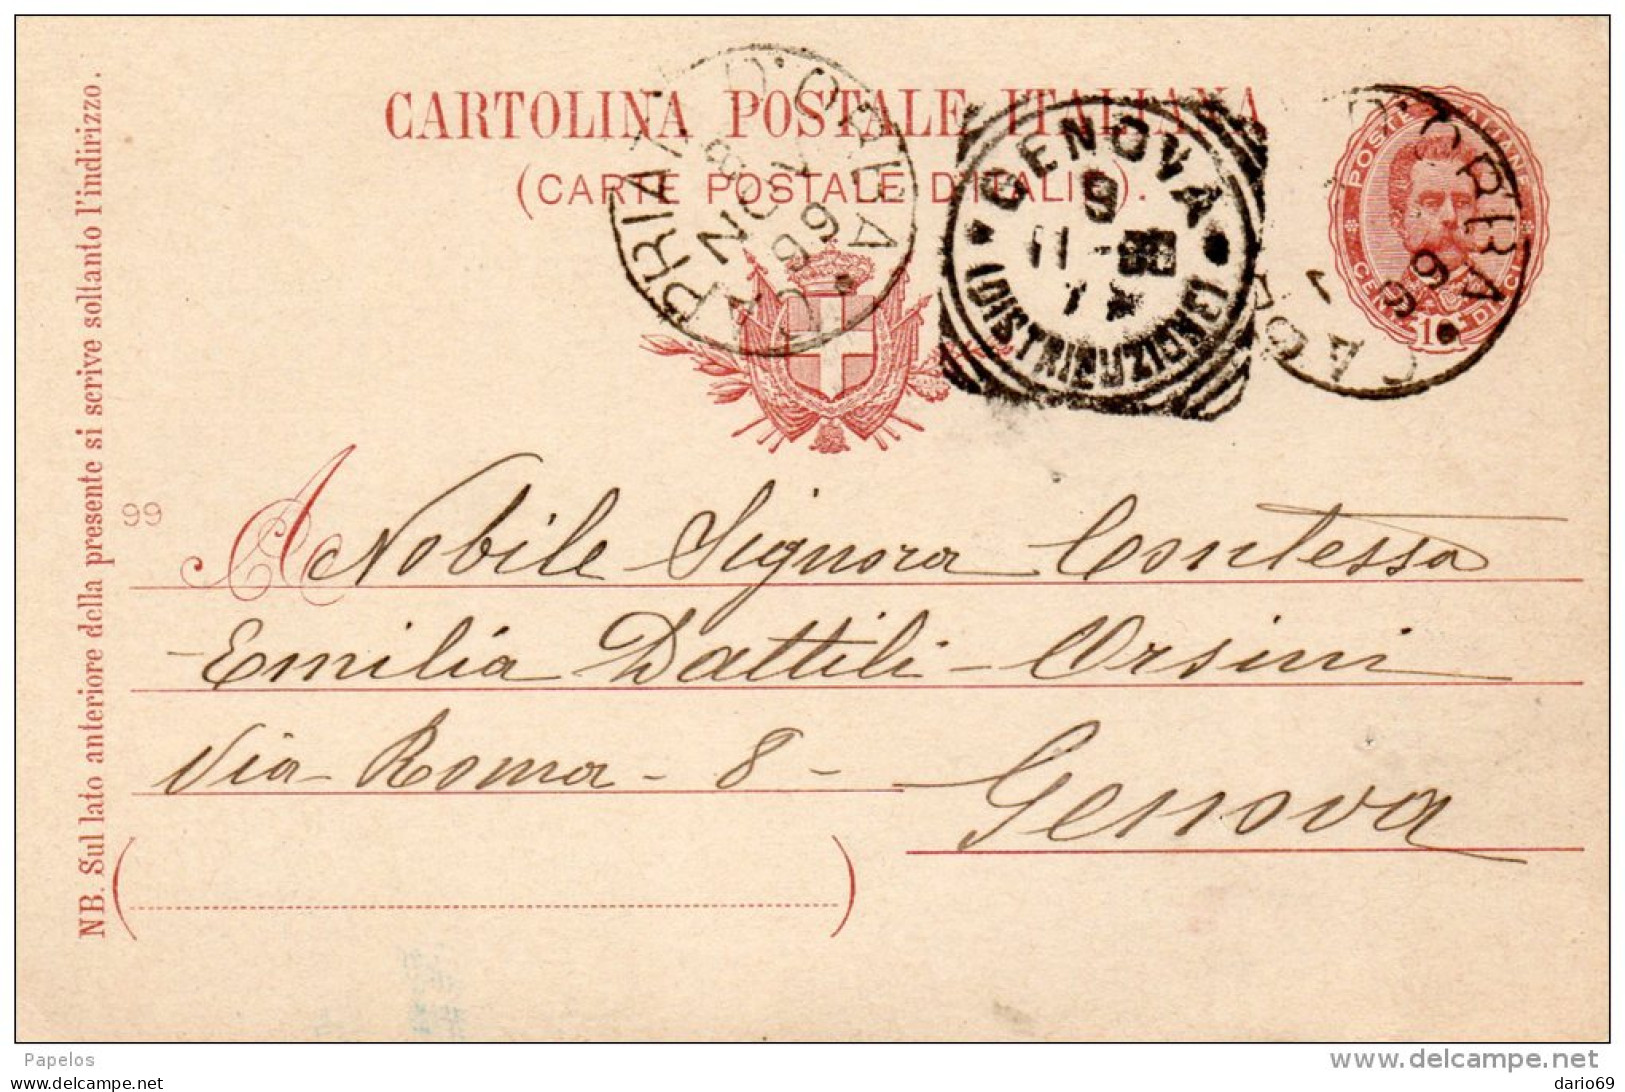 CARTOLINA POSTALE ITALIANA
(CARTE POSTALE D'ITALIE).
CAPRIATA D'ORBA
8 NOV 99
GENOVA
9
11 -
(DISTRIBUZIONE)
CAPRIATA D'ORBA
99
POSTE ITALIANE
CENT. 10 DIECI
NB. Sul lato anteriore della presente si scrive soltanto l'indirizzo.
99
A Nobile Signora Contessa
Emilia Dattili - Orsini
Via Roma - 8 -
Genova
Papelos
www.delcampe.net
All rights reserved
dario69